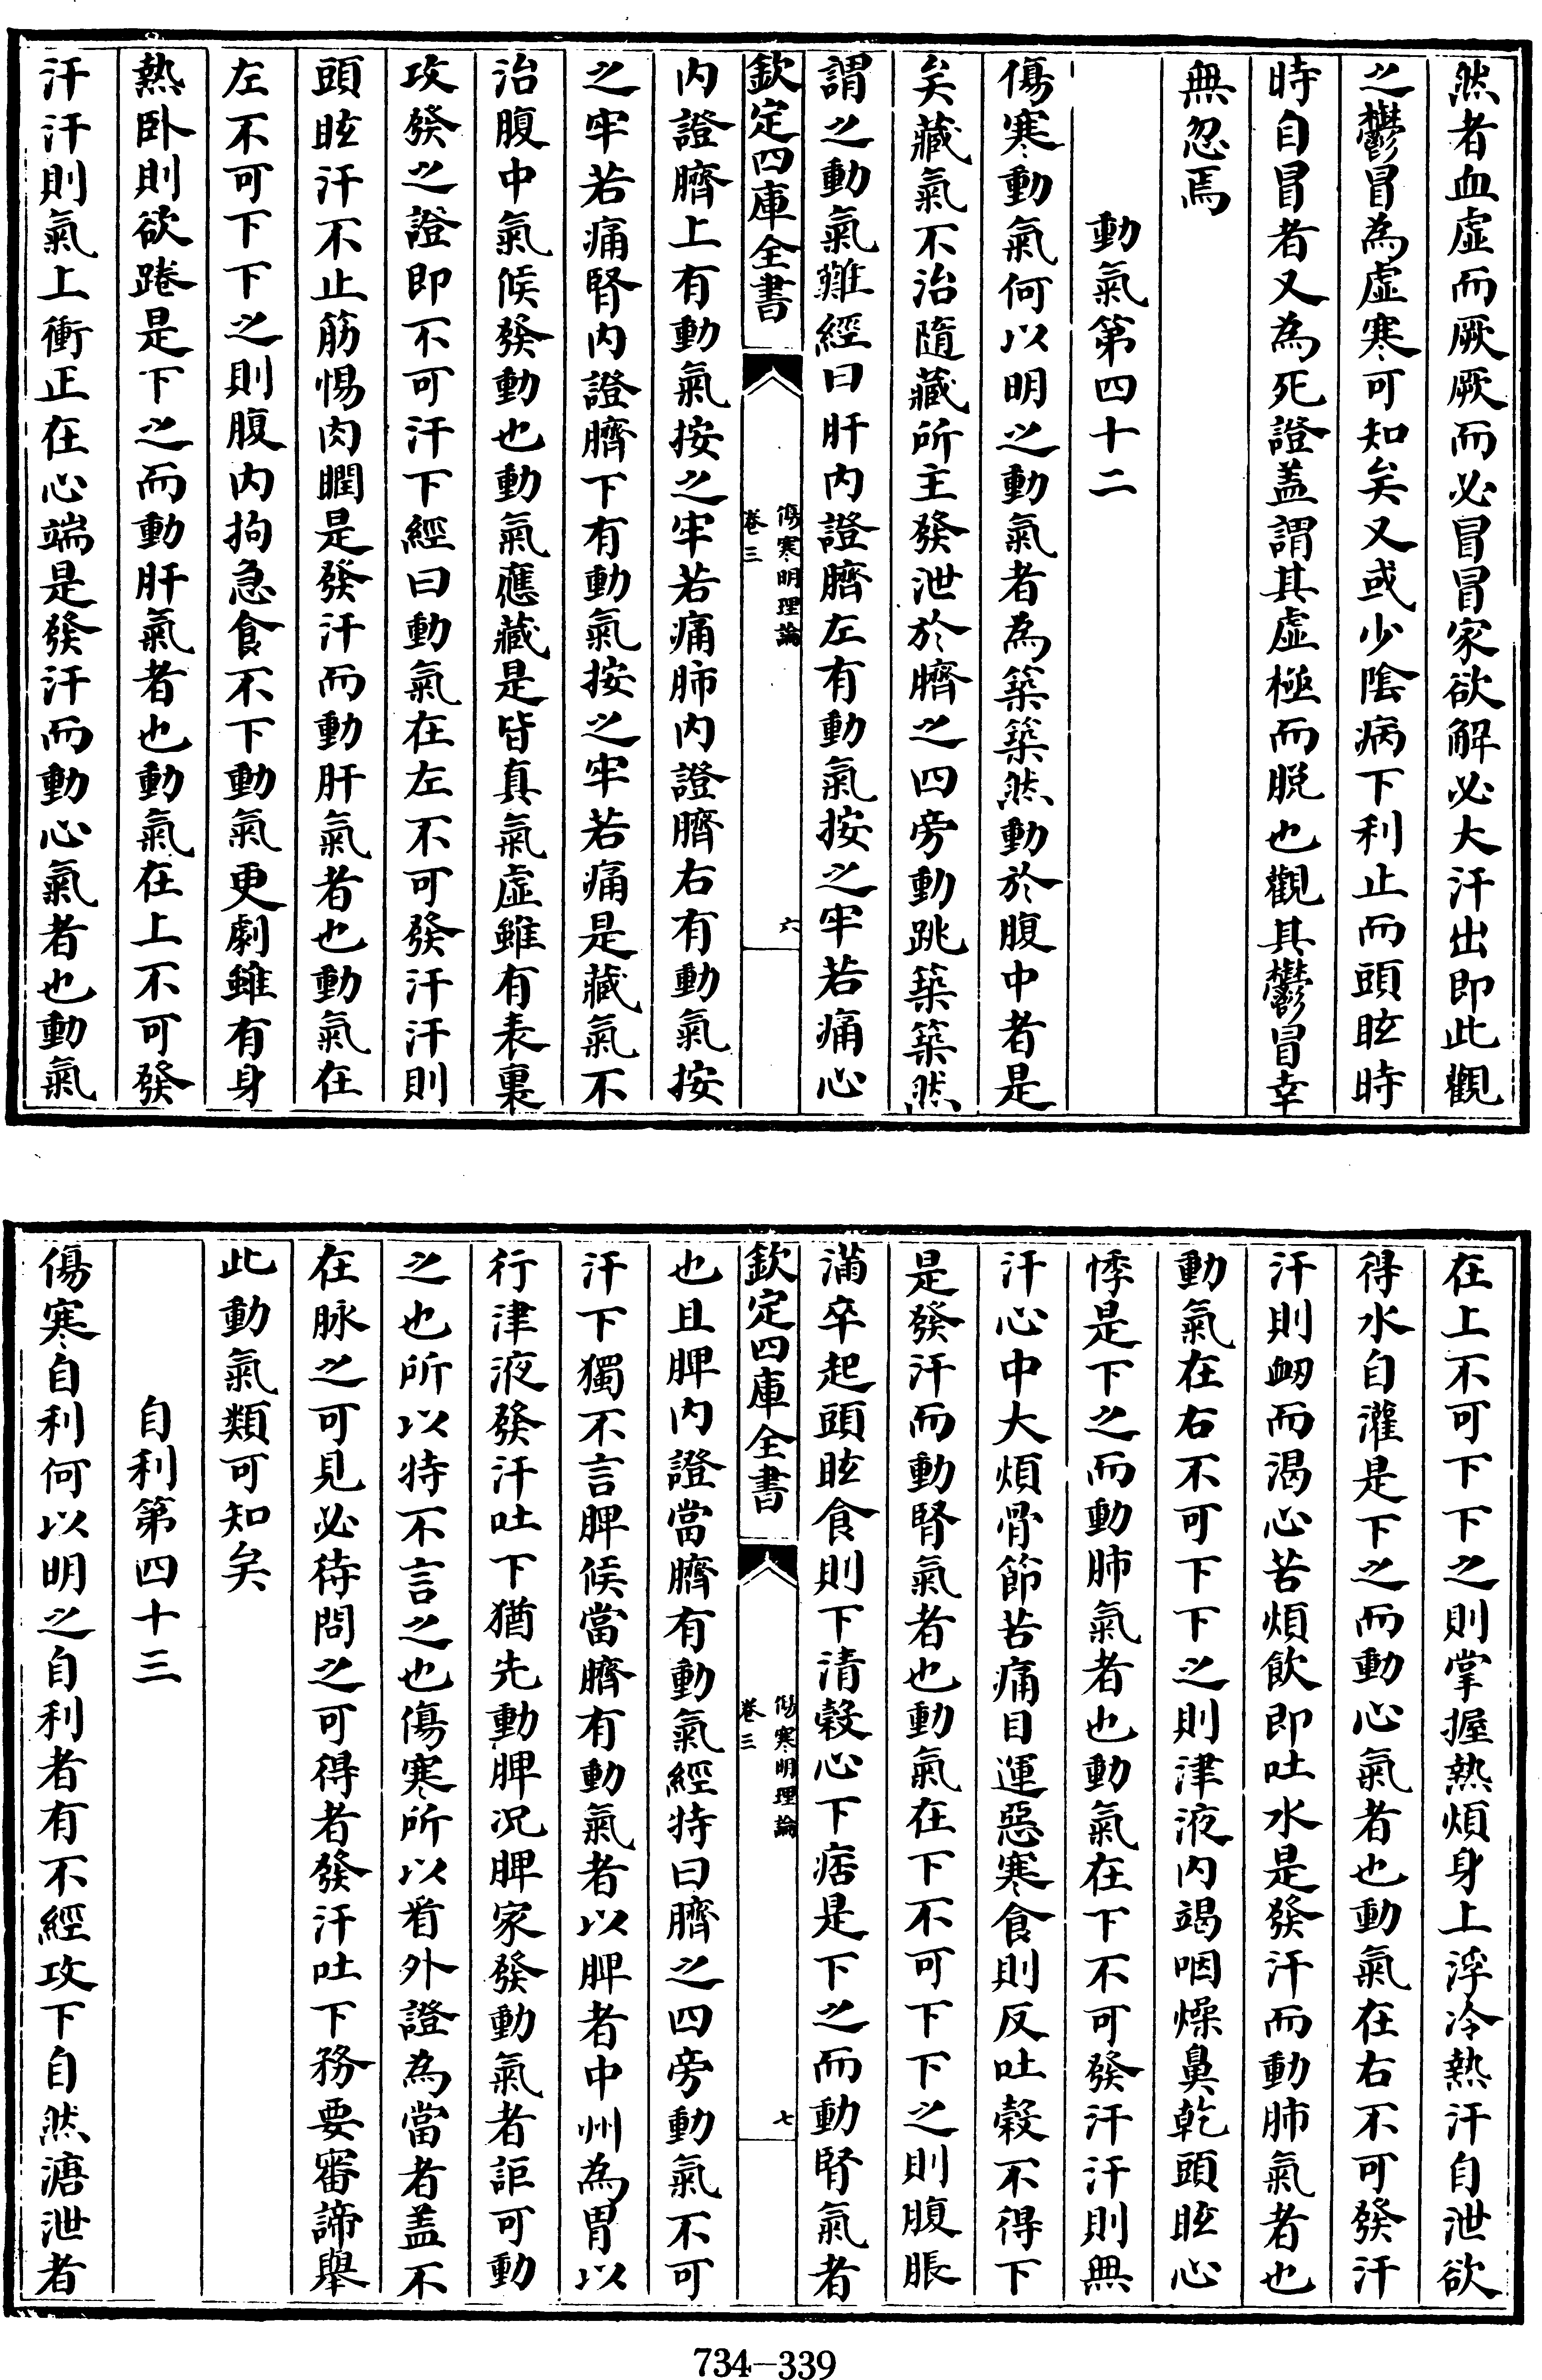 然者血虛而厥厥而必冒冒家欲解必大汗出即此觀
之鬱冒為虛寒可知矣又或少隂病下利止而頭眩時
時自冒者又為死證盖謂其虛極而脱也觀其鬱冒幸
無忽焉
動氣第四十二
傷寒動氣何以明之動氣者為築築然動於腹中者是
矣藏氣不治隨藏所主發泄於臍之四旁動跳築築然
謂之動氣難經曰肝内證臍左有動氣按之牢若痛心
欽定四庫全書
傷寒明理論
卷三
六
内證臍上有動氣按之牢若痛肺内證臍右有動氣按
之牢若痛腎内證臍下有動氣按之牢若痛是藏氣不
治腹中氣候發動也動氣應藏是皆真氣虛雖有表裏
攻發之證即不可汗下經曰動氣在左不可發汗汗則
頭眩汗不止筋惕肉瞤是發汗而動肝氣者也動氣在
左不可下下之則腹内拘急食不下動氣更劇雖有身
熱卧則欲踡是下之而動肝氣者也動氣在上不可發
汗汗則氣上衝正在心端是發汗而動心氣者也動氣
在上不可下下之則掌握熱煩身上浮冷熱汗自泄欲
得水自灌是下之而動心氣者也動氣在右不可發汗
汗則衂而渴心苦煩飲即吐水是發汗而動肺氣者也
動氣在右不可下下之則津液内竭咽燥鼻乾頭眩心
悸是下之而動肺氣者也動氣在下不可發汗汗則無
汗心中大煩骨節苦痛目運惡寒食則反吐穀不得下
是發汗而動腎氣者也動氣在下不可下下之則腹脹
滿卒起頭眩食則下清穀心下痞是下之而動腎氣者
欽定四庫全書
傷寒明理論
卷三
七
也且脾内證當臍有動氣經特曰臍之四旁動氣不可
汗下獨不言脾候當臍有動氣者以脾者中州為胃以
行津液發汗吐下猶先動脾况脾家發動氣者詎可動
之也所以特不言之也傷寒所以看外證為當者盖不
在脉之可見必待問之可得者發汗吐下務要審諦舉
此動氣類可知矣
自利第四十三
傷寒自利何以明之自利者有不經攻下自然溏泄者
734-339